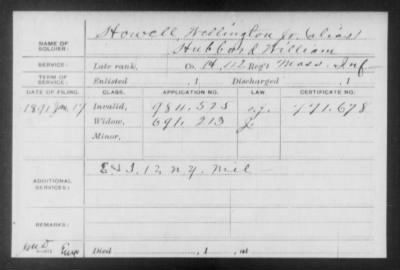 Howell, Wellington Jr. alias
NAME OF SOLDIER: Hubbard William
SERVICE: Late rank, Co. Reg't Mass. Inf
TERM OF SERVICE: Enlisted , 1 Discharged , 1
DATE OF FILING. CLASS. APPLICATION NO. LAW. CERTIFICATE NO.
1891 Jan 17 Invalid, 981.573 771.678
Widow, 691.213
Minor,
ADDITIONAL SERVICES: 12 N.Y. Mil
REMARKS:
Died , 1 , at